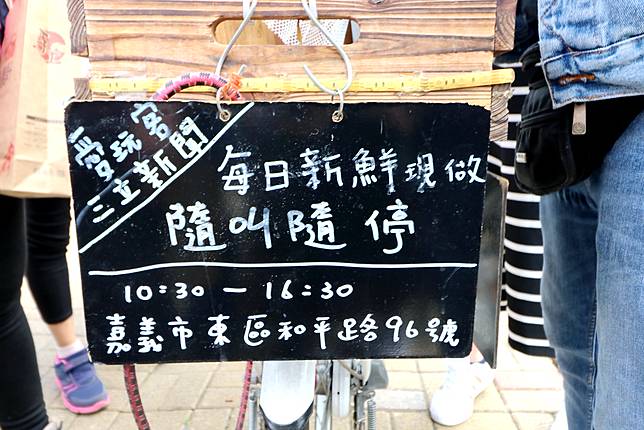 愛玩客
三立新聞
每日新鮮現做
隨叫隨停
10:30 — 16:30
嘉義市東區和平路96號